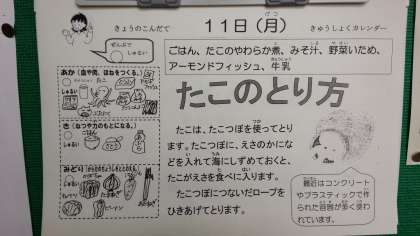 きょうのこんだて
11日(月)
きゅうしょくカレンダー
ぜんぶで
しゅるい
ごはん、たこのやわらか煮、みそ汁、野菜いため、
アーモンドフィッシュ、牛乳
あか(血や肉、ほねをつくる。)
しゅるい
き(ねつや力のもとになる。)
しゅるい
ごはん
みどり(からだのちょうしをととのえる。)
しゅるい
ピーマン
たこのとり方
たこは、たこつぼを使ってとり
ます。たこつぼに、えさのかにな
どを入れて海にしずめておくと、
たこがえさを食べに入ります。
たこつぼにつないだロープを
ひきあげてとります。
最近はコンクリート
やプラスティックで作
られた容器が多く使わ
れています。